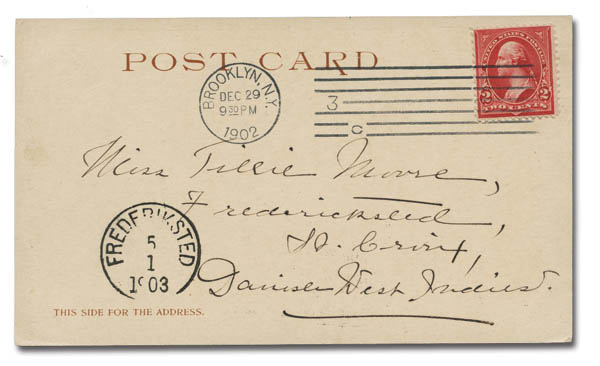 POST CARD
UNITED STATES POSTAGE
2 2
TWO CENTS
BROOKLYN, N.Y.
DEC 29
9 30 PM
1902
3
C
Miss Tillie Moore,
Fredericksted,
St. Croix,
Danish West Indies.
FREDERIKSTED
5
1
1903
THIS SIDE FOR THE ADDRESS.